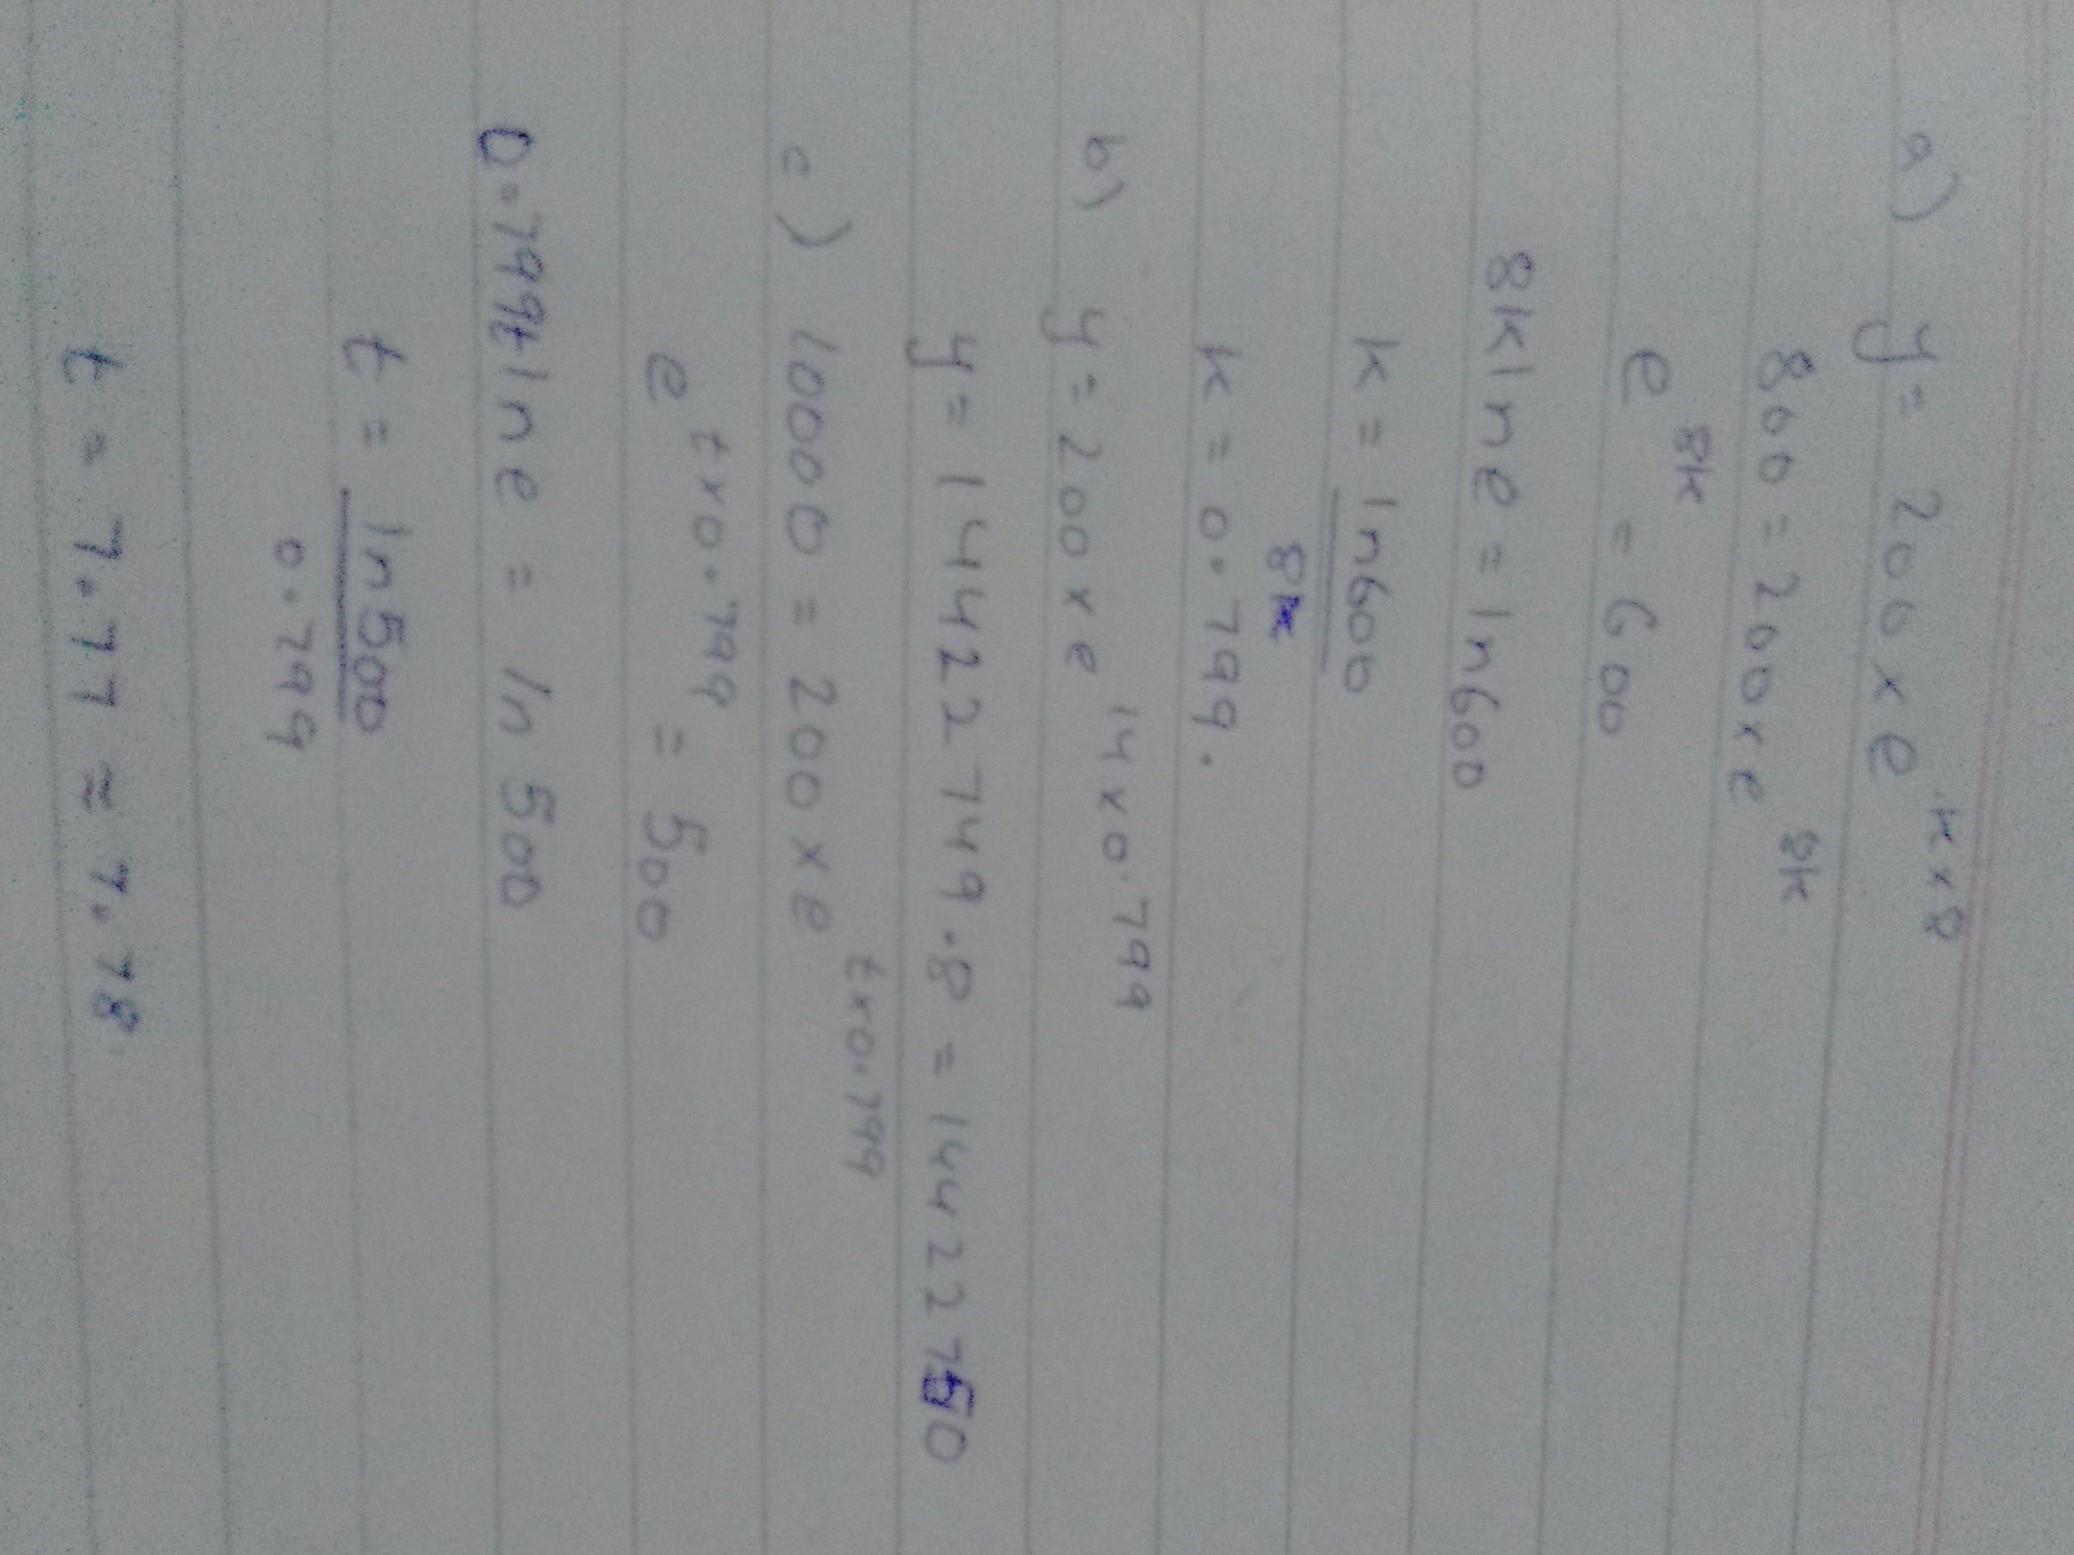 a) y = 200 x e^{k x 8}
800 = 200 x e^{8k}
e^{8k} = 600
8k ln e = ln 600
k = ln 600 / 8
k = 0.799.
b) y = 200 x e^{14 x 0.799}
y = 14422749.8 = 14422750
c) 10000 = 200 x e^{t x 0.799}
e^{t x 0.799} = 500
0.799t ln e = ln 500
t = ln 500 / 0.799
t = 7.77 ≈ 7.78